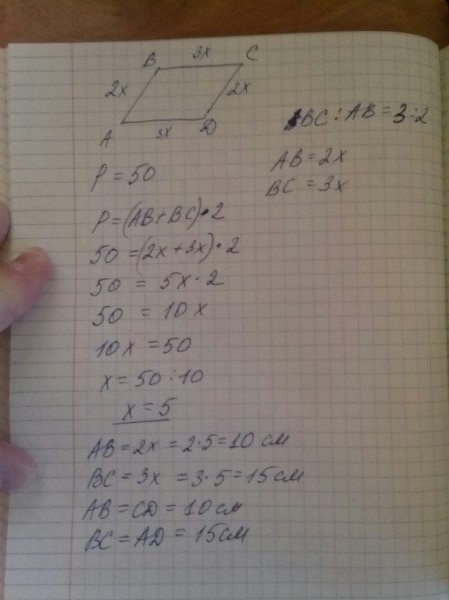 3x
B C
2x 2x
A 3x D
BC : AB = 3 : 2
AB = 2x
BC = 3x
P = 50
P = (AB + BC) • 2
50 = (2x + 3x) • 2
50 = 5x · 2
50 = 10x
10x = 50
x = 50 : 10
x = 5
AB = 2x = 2·5 = 10 см
BC = 3x = 3·5 = 15 см
AB = CD = 10 см
BC = AD = 15 см